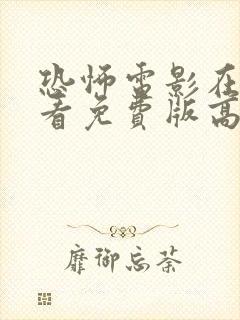 恐怖雷影在
看免費版高
靡御忘荼